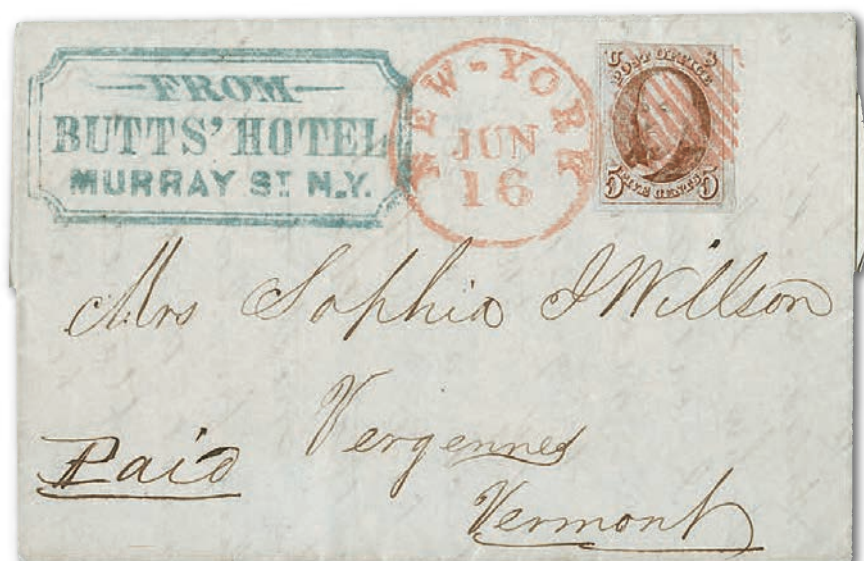 FROM
BUTTS' HOTEL
MURRAY ST. N.Y.
NEW-YORK
JUN
16
U S
POST OFFICE
5 FIVE CENTS 5
Mrs Sophia J Willson
Vergennes
Paid
Vermont